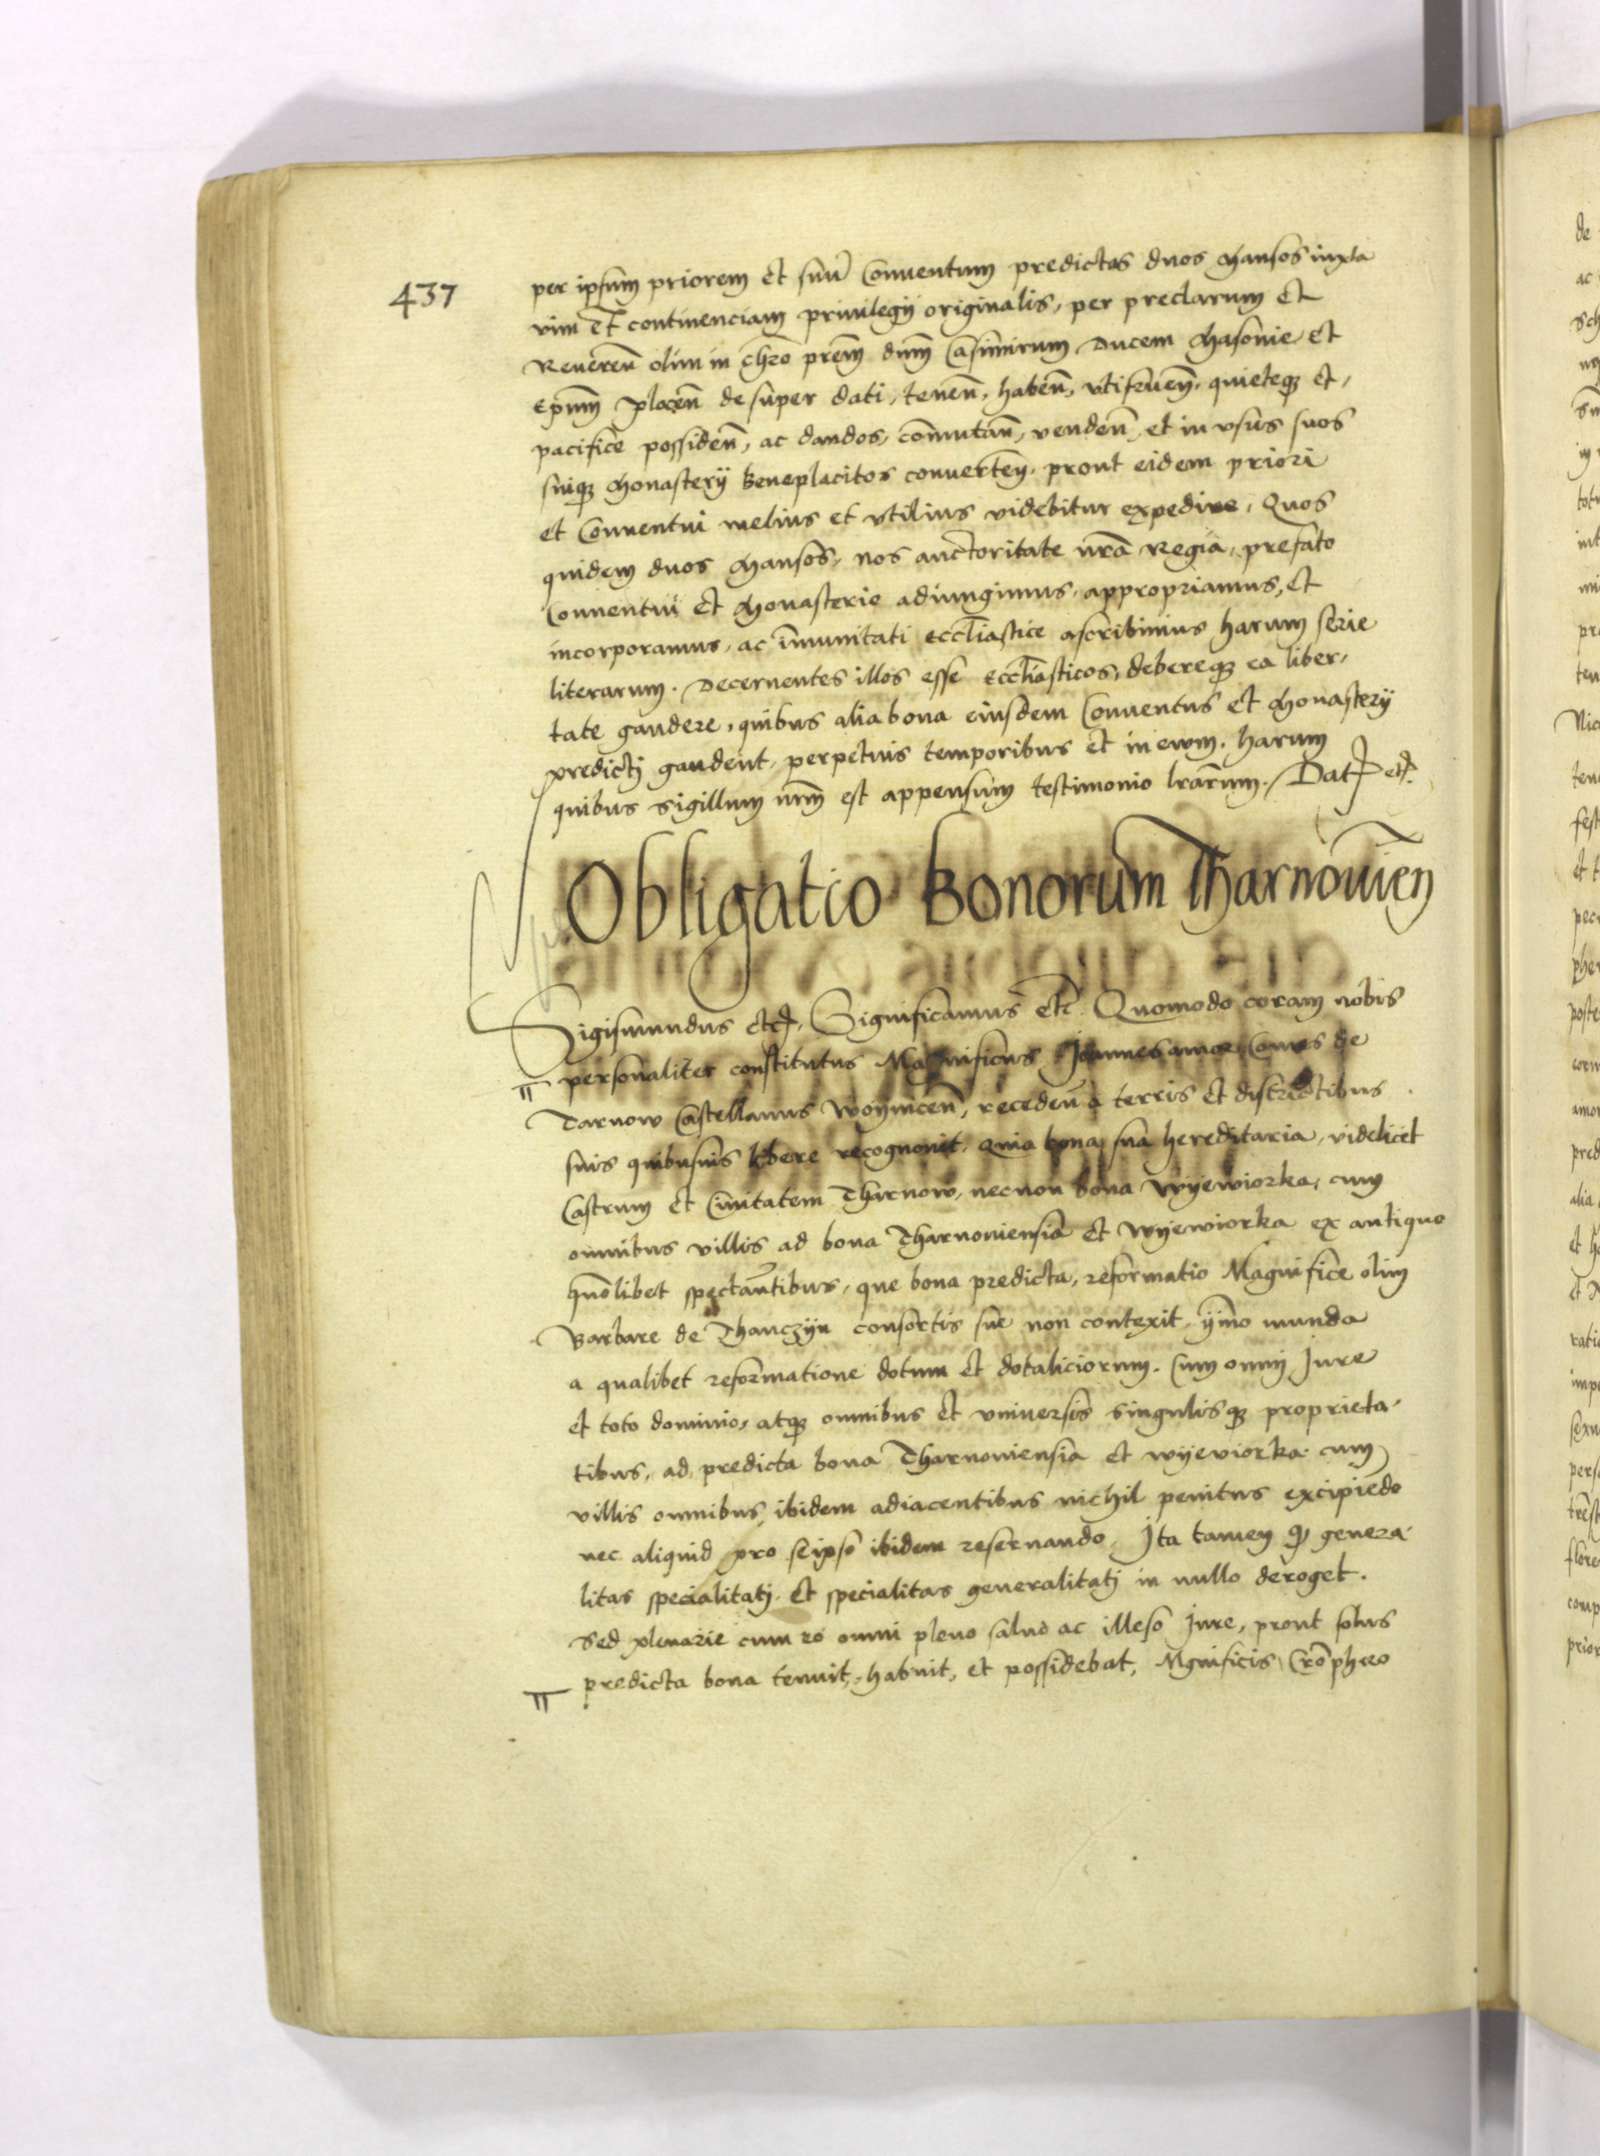 437
per ipsum priorem et suū Conventum predictos duos Mansos iuxta
vim et continenciam privilegij originalis, per preclarum et
Reveren̄ olim in Chro prem̄ dnm̄ Casimirum Ducem Masovie et
Epūm plocen̄ desuper dati, tenen̄, haben̄, utifruen̄, quieteq3 et,
pacifice possiden̄, ac dandos, com̄utan̄, venden̄, et in usus suos
suiq3 Monasterij beneplacitos converten̄, prout eidem priori
et Conventui melius et utilius videbitur expedire, Quos
quidem duos Mansos, nos auctoritate nrā Regia, prefato
Conventui et Monasterio adiungimus, appropriamus, et
incorporamus, ac im̄unitati eccl̄iastice ascribimus harum serie
literarum. Decernentes illos esse eccl̄iasticos, debereq3 ea liber,
tate gaudere, quibus alia bona eiusdem Conventus et Monasterij
predictj gaudent, perpetuis temporibus et in ewm. harum
quibus sigillum nrm̄ est appensum testimonio lrārum. Dat etc.
Obligatio Bonorum Tharnovien̄
Sigismundus etc, Significamus etc. Quomodo coram nobis
personaliter constitutus Magnificus Joannes amor Comes de
Tarnow Castellanus Woynicen̄, receden̄ a terris et districtibus
suis quibusvis libere recognovit. Quia bona sua hereditaria, videlicet
Castrum et Civitatem Tharnow, necnon bona Wyewiorka, cum
omnibus villis ad bona Tharnoviensia et Wyewiorka ex antiquo
quōlibet spectantibus, que bona predicta, reformatio Magnifice olim
Barbare de Thanczyn consortis sue non contexit, ymo munda
a qualibet reformatione dotum et dotaliciorum. Cum omnj Jure
et toto dominio, atq3 omnibus et universis singulisq3 proprieta,
tibus, ad predicta bona Tharnoviensia et Wyeviorka cum
villis omnibus ibidem adiacentibus nichil penitus excipiēdo
nec aliquid pro seipso ibidem reservando, Ita tamen q genera,
litas specialitatj, et specialitas generalitatj in nullo deroget.
Sed plenarie cum eo omni pleno salvo ac illeso Jure, prout solus
predicta bona tenuit, habuit, et possidebat, Mgnificis Cro͞phero